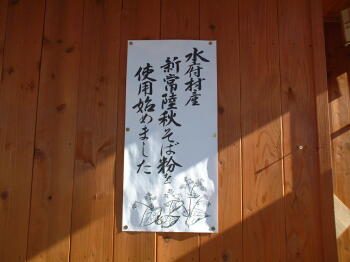 水府村産
新常陸秋そば粉を
使用始めました